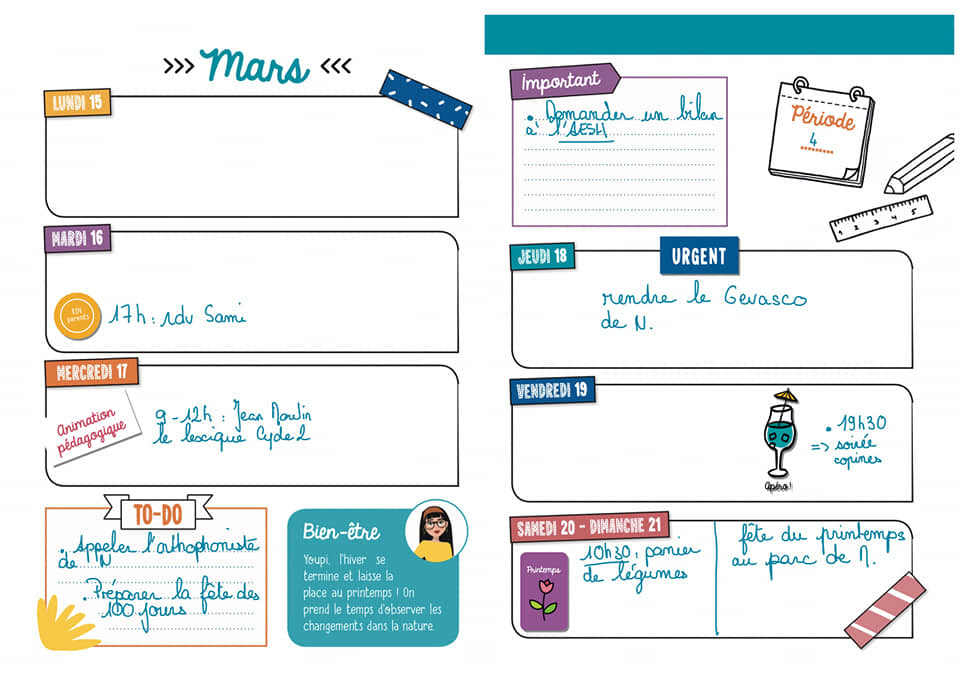 >>> Mars <<<
LUNDI 15
MARDI 16
RDV
parents
17h : rdv Sami
MERCREDI 17
Animation
pédagogique
9-12h : Jean Moulin
le lexique Cycle 2
TO-DO
• Appeler l'orthophoniste
de N
• Préparer la fête des
100 jours
Bien-être
Youpi, l'hiver se
termine et laisse la
place au printemps ! On
prend le temps d'observer les
changements dans la nature.
Important
• Demander un bilan
à l'AESH
Période
4
1 2 3 4 5
JEUDI 18
URGENT
rendre le Gevasco
de N.
VENDREDI 19
Apéro !
• 19h30
=> soirée
copines
SAMEDI 20 - DIMANCHE 21
Printemps
10h30 : panier
de légumes
fête du printemps
au parc de M.